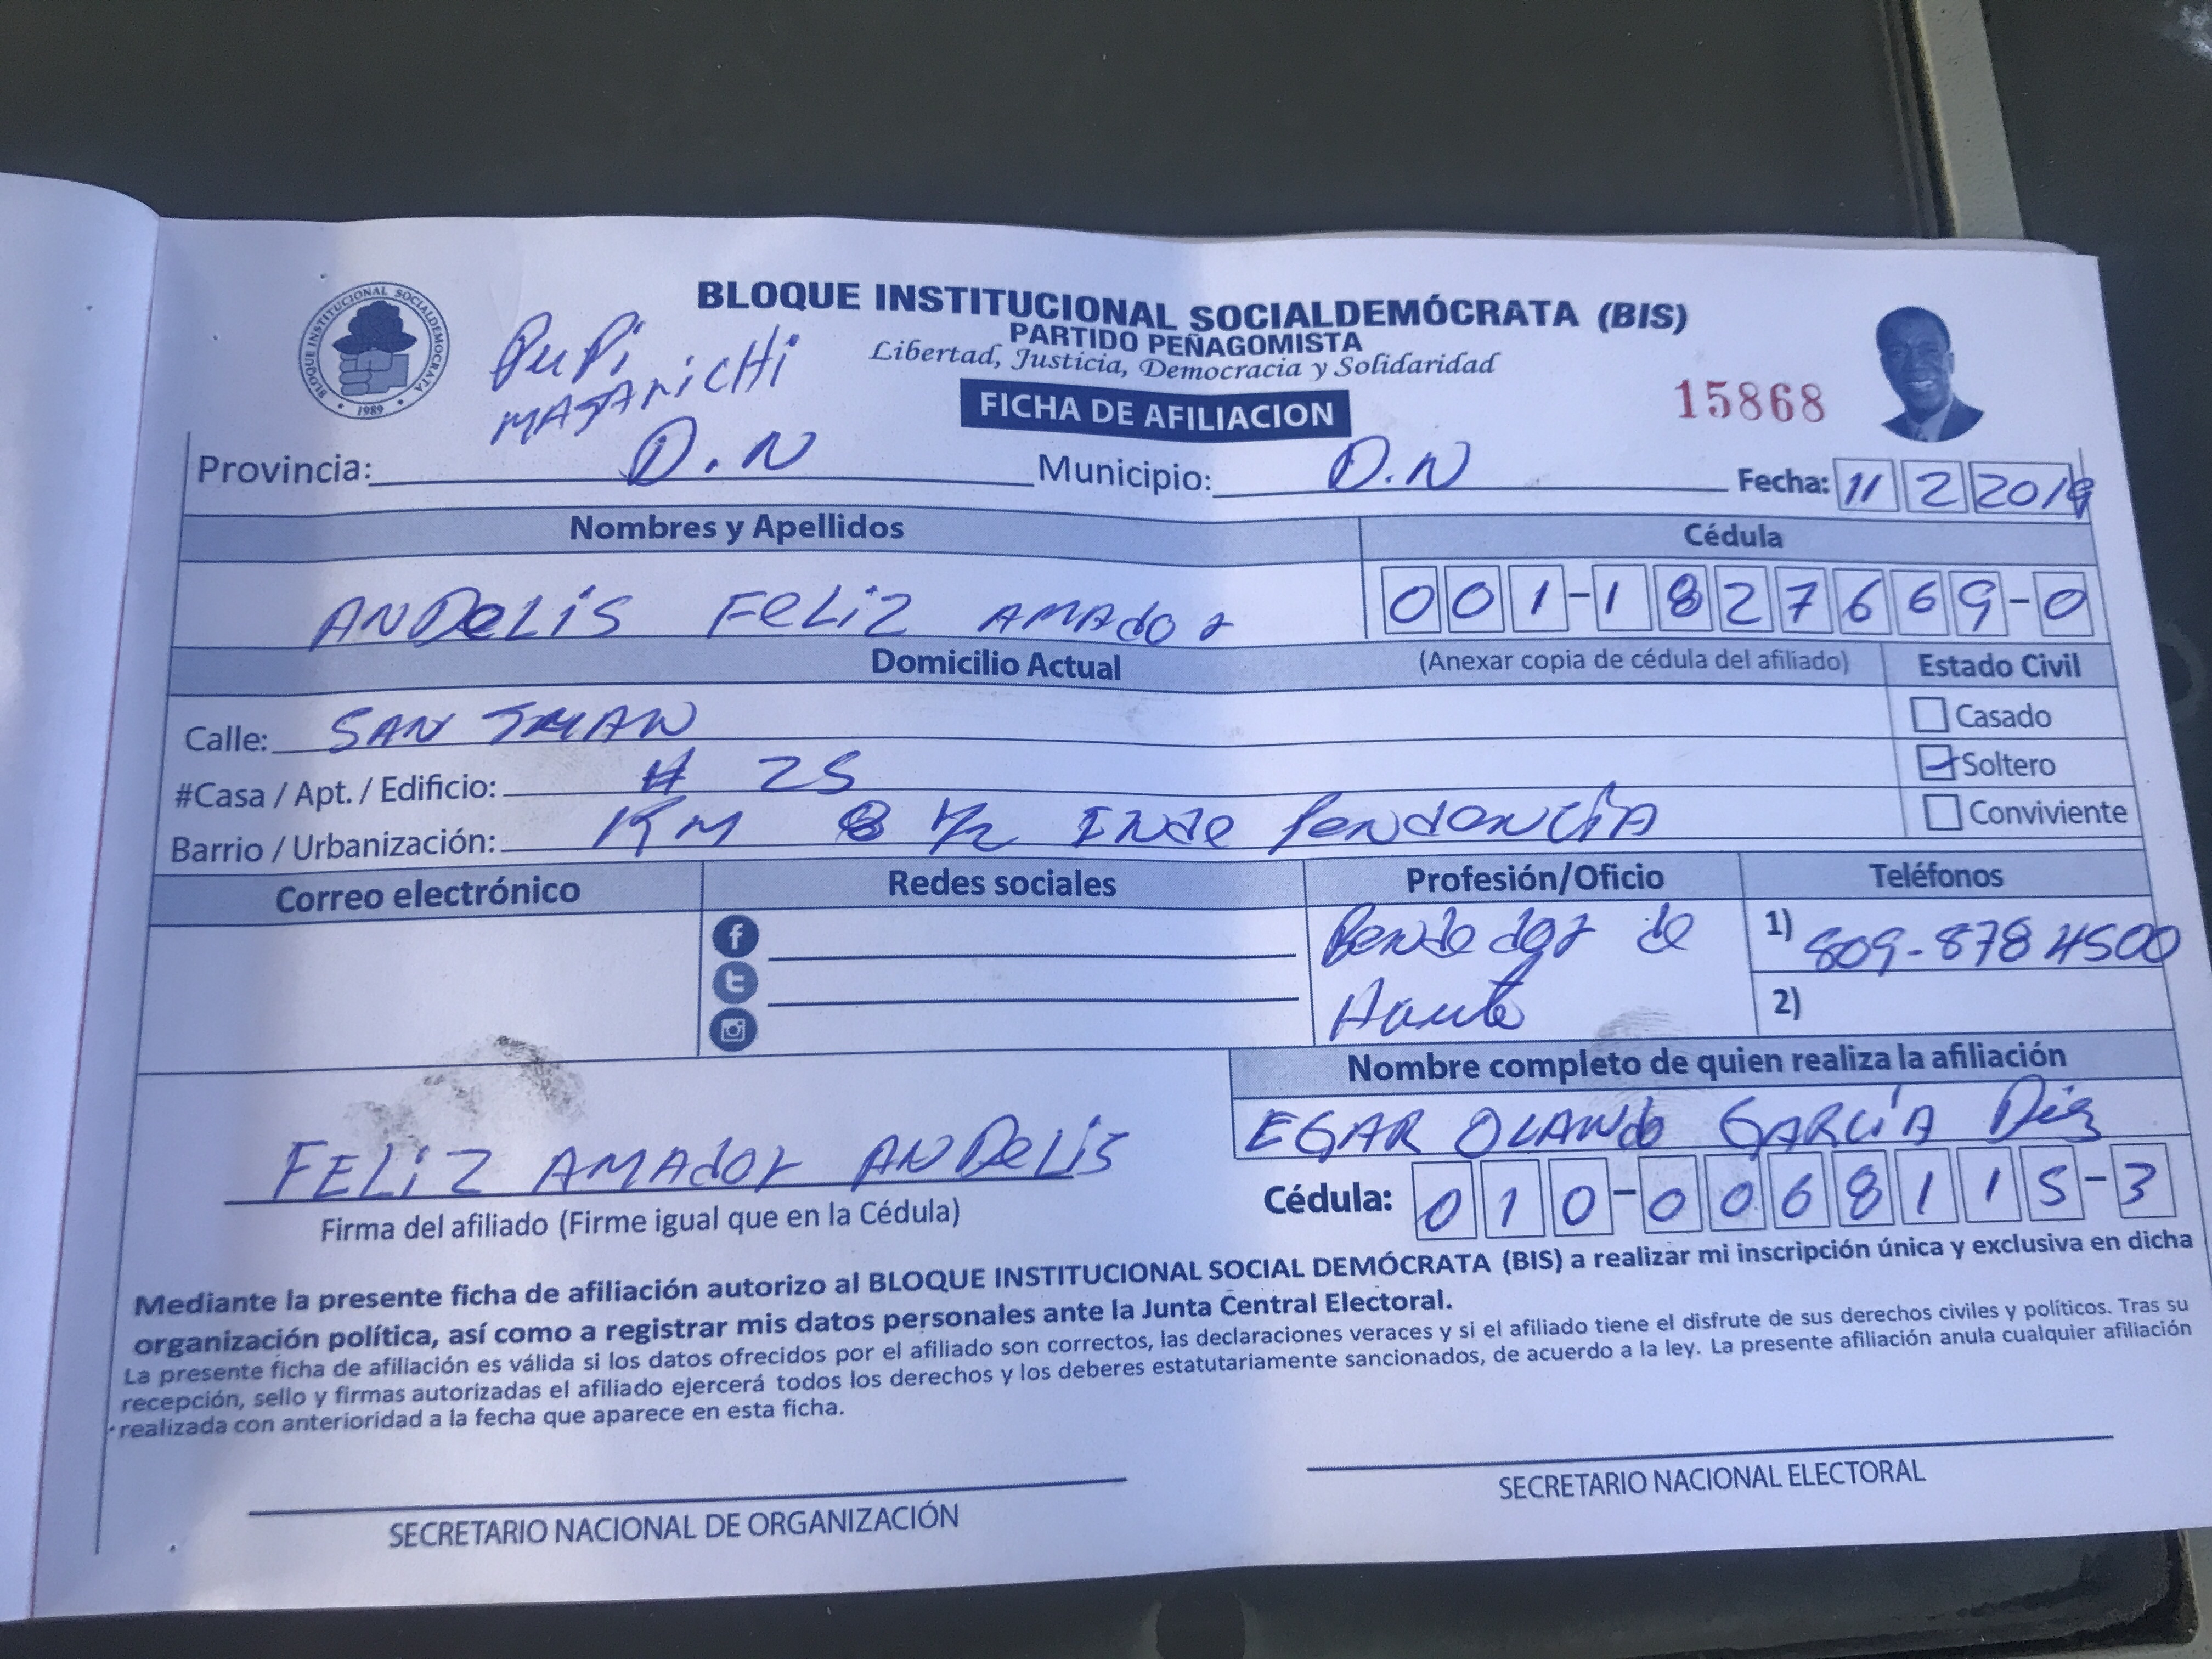 BLOQUE INSTITUCIONAL SOCIALDEMÓCRATA
1989
PuPi
MATARICHI
BLOQUE INSTITUCIONAL SOCIALDEMÓCRATA (BIS)
PARTIDO PEÑAGOMISTA
Libertad, Justicia, Democracia y Solidaridad
FICHA DE AFILIACION
15868
Provincia: D.N Municipio: D.N Fecha: 11 2 2019
Nombres y Apellidos Cédula
ANDELIS FELIZ AMADOR 001-1827669-0
Domicilio Actual (Anexar copia de cédula del afiliado) Estado Civil
Calle: SAN JUAN
Casado
#Casa / Apt. / Edificio: # 25
Soltero
Barrio / Urbanización: KM 8 1/2 INDePendenCIA
Conviviente
Correo electrónico Redes sociales Profesión/Oficio Teléfonos
Bendedor de
1) 809-878 4500
2)
Nombre completo de quien realiza la afiliación
EGAR OLANDO GARCÍA Díaz
FELIZ AMADOR ANDELIS
Cédula: 010-0068115-3
Firma del afiliado (Firme igual que en la Cédula)
Mediante la presente ficha de afiliación autorizo al BLOQUE INSTITUCIONAL SOCIAL DEMÓCRATA (BIS) a realizar mi inscripción única y exclusiva en dicha
organización política, así como a registrar mis datos personales ante la Junta Central Electoral.
La presente ficha de afiliación es válida si los datos ofrecidos por el afiliado son correctos, las declaraciones veraces y si el afiliado tiene el disfrute de sus derechos civiles y políticos. Tras su
recepción, sello y firmas autorizadas el afiliado ejercerá todos los derechos y los deberes estatutariamente sancionados, de acuerdo a la ley. La presente afiliación anula cualquier afiliación
realizada con anterioridad a la fecha que aparece en esta ficha.
SECRETARIO NACIONAL DE ORGANIZACIÓN
SECRETARIO NACIONAL ELECTORAL